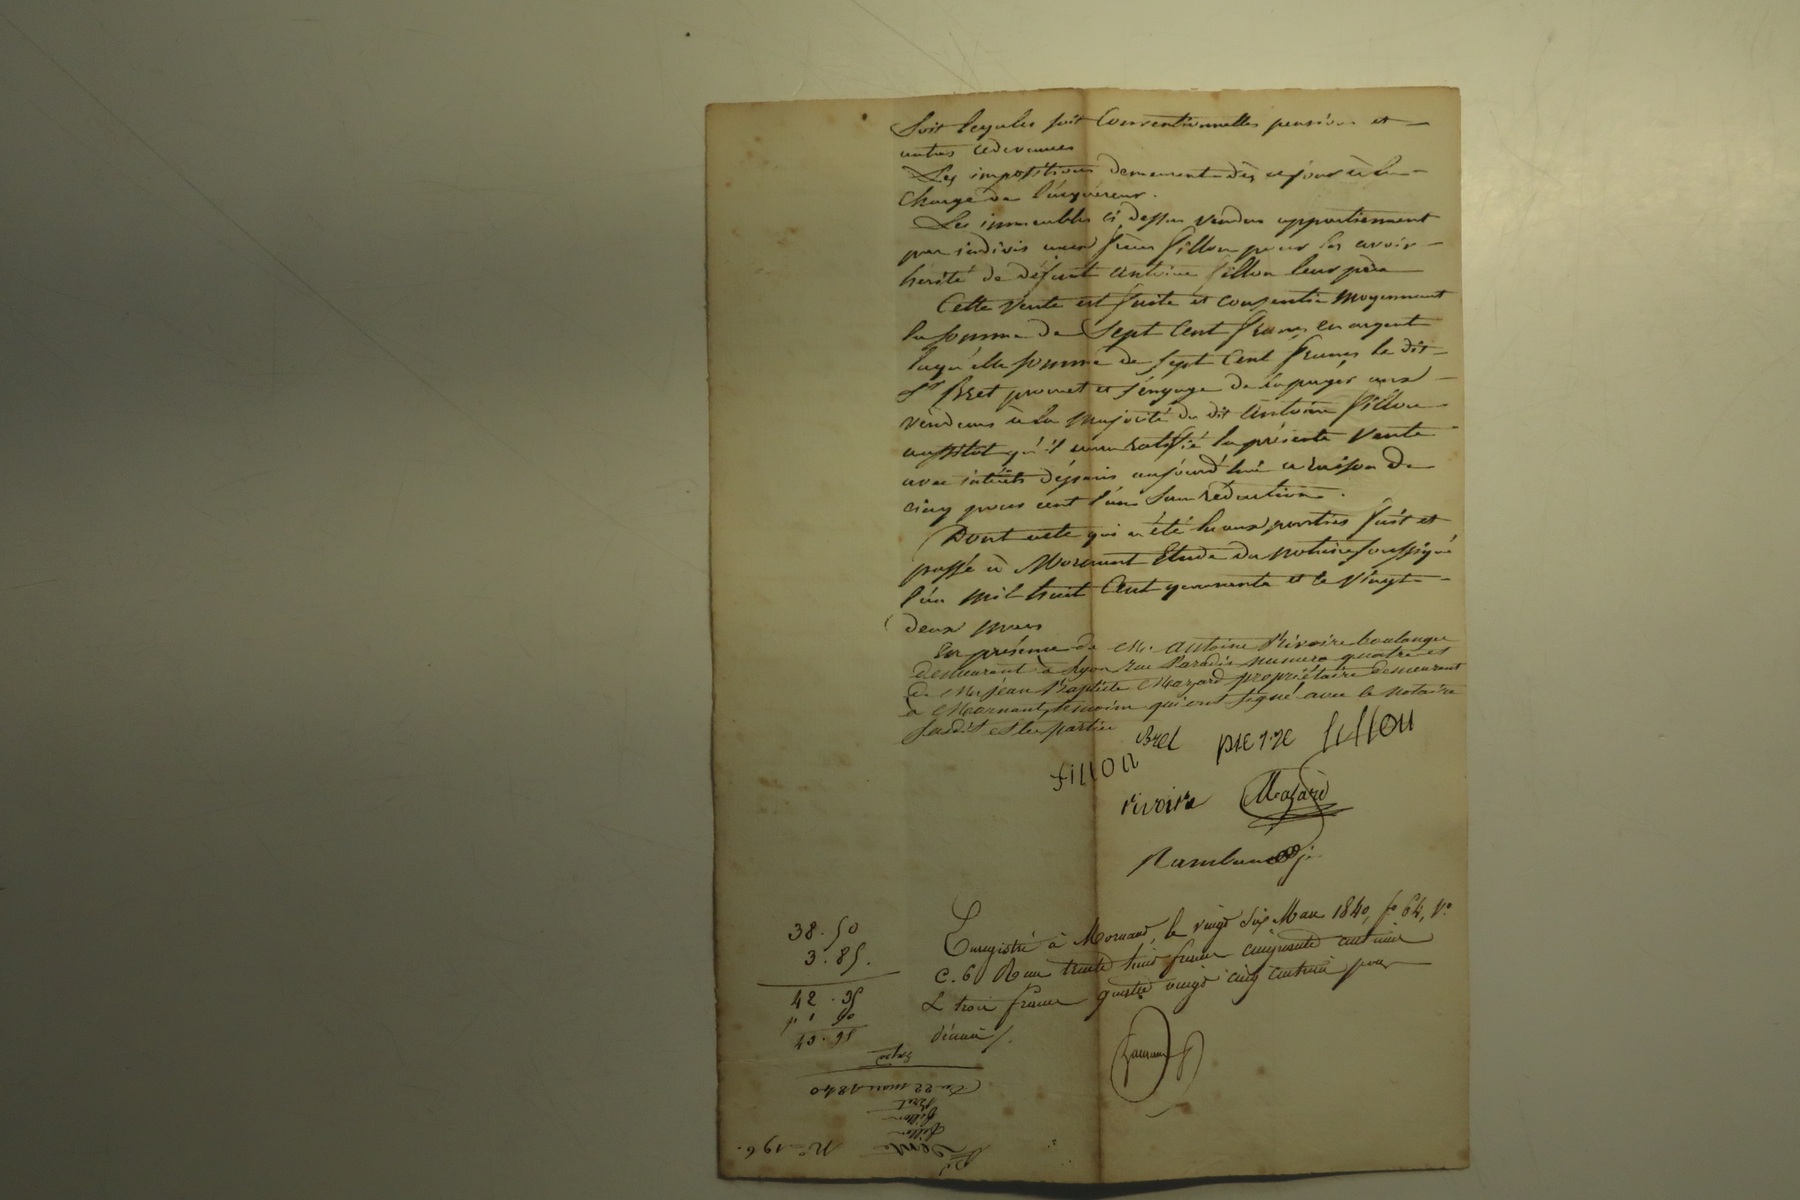 Soit legales soit Conventionnelles pensions et
autres redevances
Les impositions demeurent dès ce jour à la
charge de l'acquéreur.
Les immeubles ci dessus vendus appartiennent
par indivis aux frères fillon pour les avoir
hérité de défunt antoine fillon leur père
Cette vente est faite et consentie moyennant
la somme de Sept Cent francs en argent
laquelle somme de sept Cent francs le dit
Sr Bret promet et s'engage de la payer aux
vendeurs à la majorité du dit Antoine fillon
aussitot qu'il aura ratifié la présente vente
avec intérêts dépuis aujourd'hui a raison de
cinq pour cent l'an sans réduction.
Dont acte qui a été lu aux parties fait et
passé à Mornant Etude du notaire soussigné
l'an mil huit Cent quarante et le vingt
deux mars
En présence de Mr. Antoine Rivoire boulanger
demeurant à Lyon rue Paradis numero quatre et
de Mr jean Baptiste Mazard propriétaire demeurant
à Mornant, témoins qui ont signé avec le notaire
susdit et les parties
Bret pierre fillon
fillon
rivoire Mazard
Enregistré à Mornant, le vingt six Mars 1840, fo 64, Vo
C. 6 Reçu trente huit francs cinquante centimes
& trois francs quatre vingt cinq centimes pour
décime
38.50
3.85.
42.35
1 60
43.95
Du 22 mars 1840
Bret
fillon
fillon
Vente
No 196.